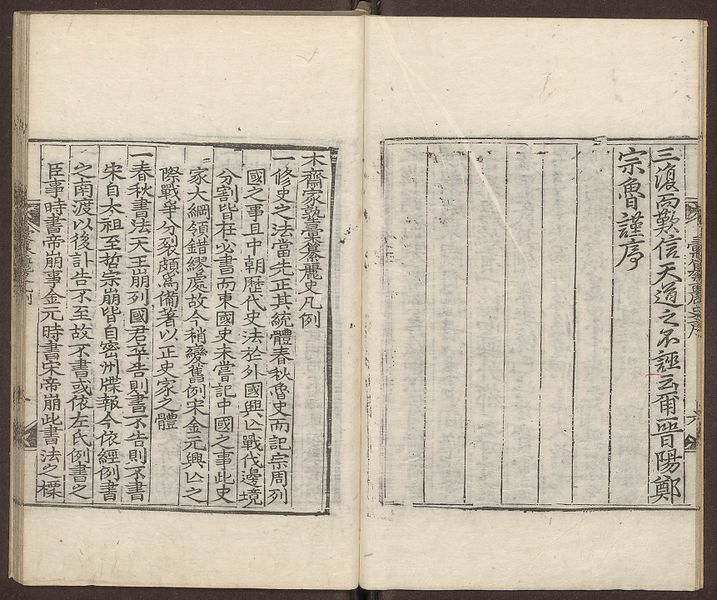 三復而歎信天道之不誣云爾晉陽鄭
宗魯謹序
木齋家塾彙纂麗史凡例
一修史之法當先正其統體春秋魯史而記宗周列
國之事且中朝歷代史法於外國興亡戰伐邊境
分割皆在必書而東國史未嘗記中國之事此史
家大綱領錯繆處故今稍變舊例宋金元興亡之
際戰爭分裂頗爲備著以正史家之體
一春秋書法天王崩列國君卒告則書不告則不書
宋自太祖至哲宗崩皆自密州牒報今依經例書
之南渡以後訃告不至故不書或依左氏例書之
臣事時書帝崩事金元時書宋帝崩此書法之標